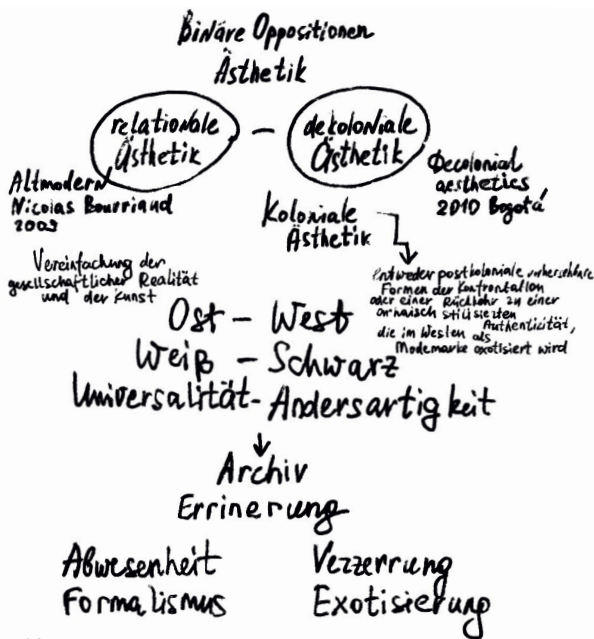 Binäre Oppositionen
Ästhetik
relationale – dekoloniale
Ästhetik Ästhetik
Altmodern
Nicolas Bourriaud
2009
Decolonial
aesthetics
2010 Bogotá
Koloniale
Ästhetik
Vereinfachung der
gesellschaftlicher Realität
und der Kunst
Entweder postkoloniale vorhersehbare
Formen der Konfrontation
oder einer Rückkehr zu einer
archaisch stilisierten
Authenticität,
die im Westen als
Modemarke exotisiert wird
Ost – West
Weiß – Schwarz
Universalität – Andersartigkeit
Archiv
Errinerung
Abwesenheit Verzerrung
Formalismus Exotisierung